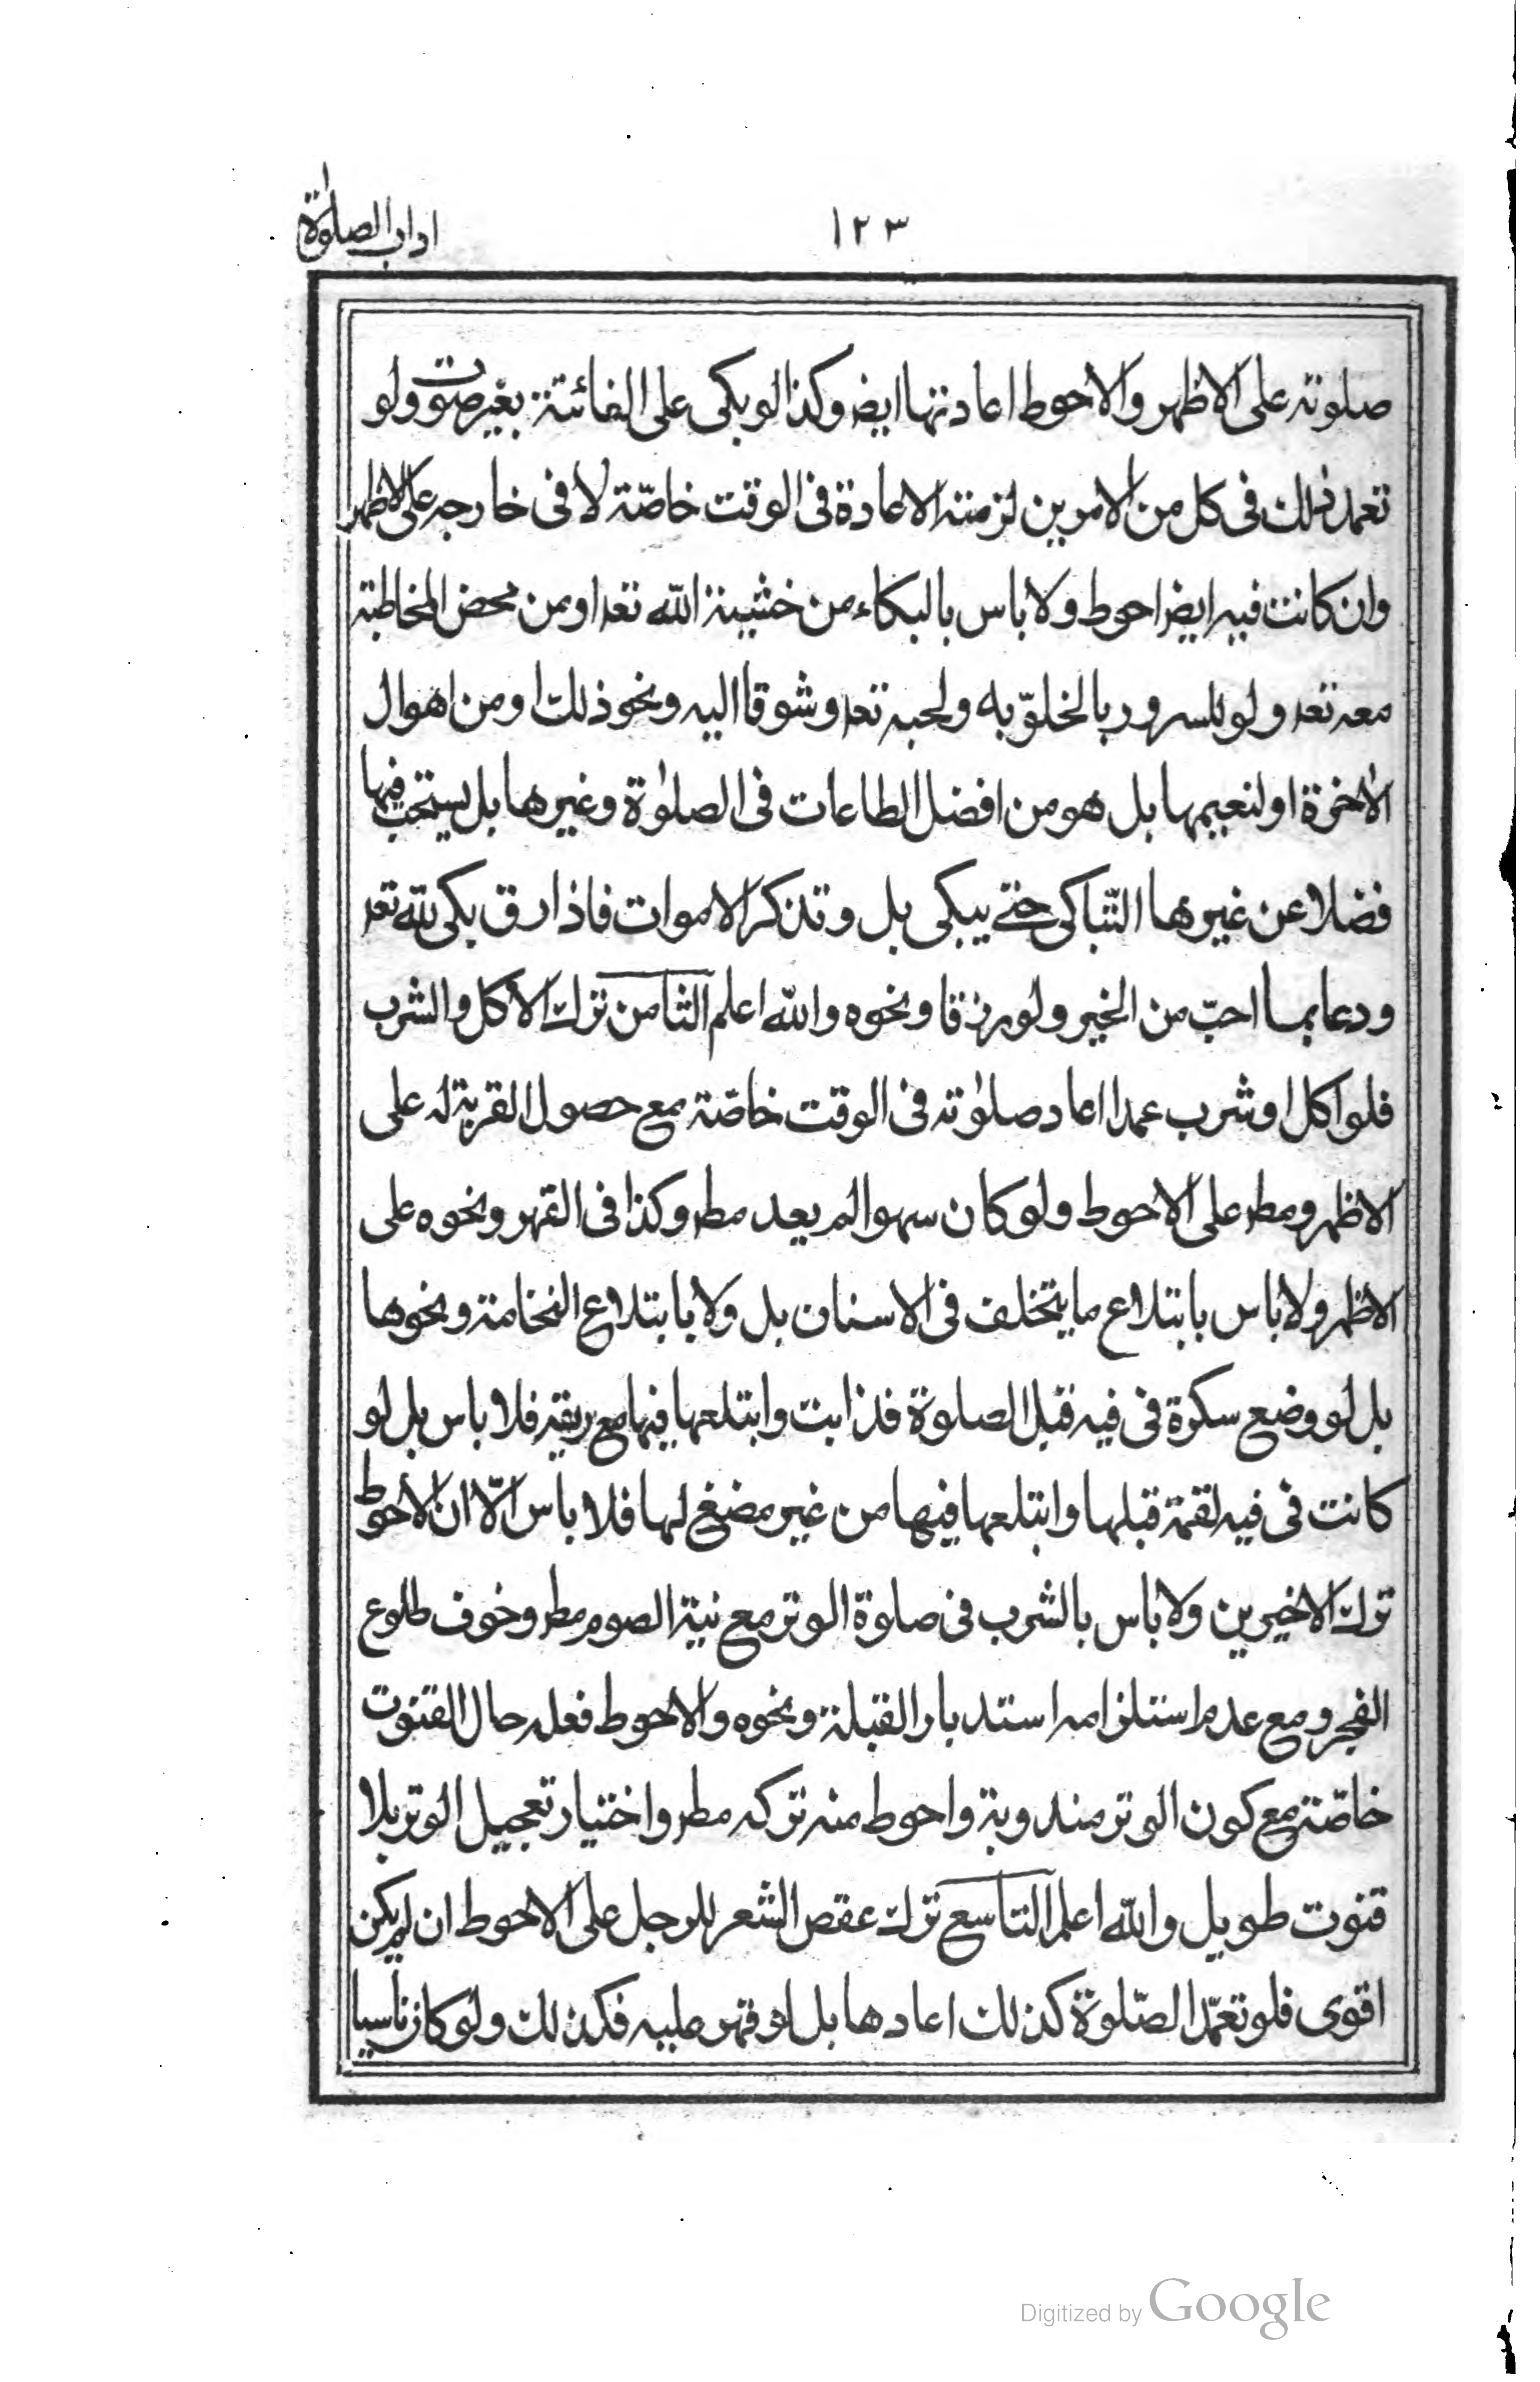 ١٢٣
اداب الصلوٰة
صلوته على الاظهر والاحوط اعادتها ايضا وكذا لو بكى على الفائتة بغير صوت ولو
تعمد ذلك فى كل من الامرين لزمته الاعادة فى الوقت خاصّة لا فى خارجه على الاظهر
وان كانت فيه ايضا احوط ولا باس بالبكاء من خشية الله تعه او من محض المخاطبة
معه تعه ولو للسرور بالخلوّ به ولحبه تعه وشوقا اليه ونحو ذلك او من اهوال
الاخرة او لنعيمها بل هو من افضل الطاعات فى الصلوٰة وغيرها بل يستحب فيها
فضلا عن غيرها التّباكى حتى يبكى بل وتذكر الاموات فاذا رق بكى لله تعه
ودعا بما احبّ من الخير ولو رزقا ونحوه والله اعلم الثامن ترك الاكل والشرب
فلو اكل او شرب عمدا اعاد صلوٰته فى الوقت خاصّة مع حصول القربة له على
الاظهر ومطر على الاحوط ولو كان سهوا لم يعد مطر وكذا فى القهر ونحوه على
الاظهر ولا باس بابتلاع ما يتخلف فى الاسنان بل ولا بابتلاع النخامة ونحوها
بل لو وضع سكرة فى فيه قبل الصلوة فذابت وابتلعها فيها مع ريقه فلا باس بل لو
كانت فى فيه لقمة قبلها وابتلعها فيها من غير مضغ لها فلا باس الّا ان الاحوط
ترك الاخيرين ولا باس بالشرب فى صلوة الوتر مع نية الصوم مطر وخوف طلوع
الفجر ومع عدم استلزامه استدبار القبلة ونحوه والاحوط فعله حال القنوت
خاصّة مع كون الوتر مندوبة واحوط منه تركه مطر واختيار تعجيل الوتر بلا
قنوت طويل والله اعلم التاسع ترك عقص الشعر للرجل على الاحوط ان لم يكن
اقوى فلو تعمّد الصّلوة كذلك اعادها بل لو قهر عليه فكذلك ولو كان ناسيا
Digitized by Google